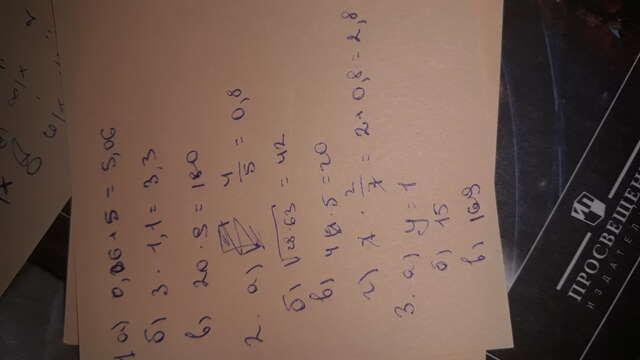 1 а) 0,06 + 5 = 5,06
б) 3 · 1,1 = 3,3
в) 20 · 9 = 180
2. а) 4/5 = 0,8
б) √28·63 = 42
в) 4 · 5 = 20
г) 7 · 2/7 = 2 + 0,8 = 2,8
3. а) y = 1
б) 15
в) 169
ПРОСВЕЩЕН
ИЗДАТЕЛ